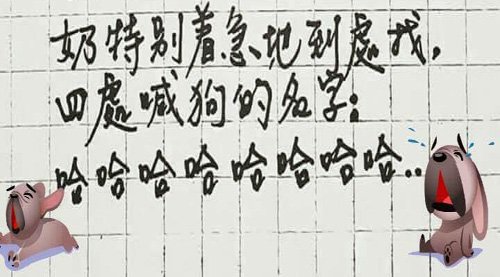 奶特别着急地到處找,
四處喊狗的名字:
哈哈哈哈哈哈哈哈哈..